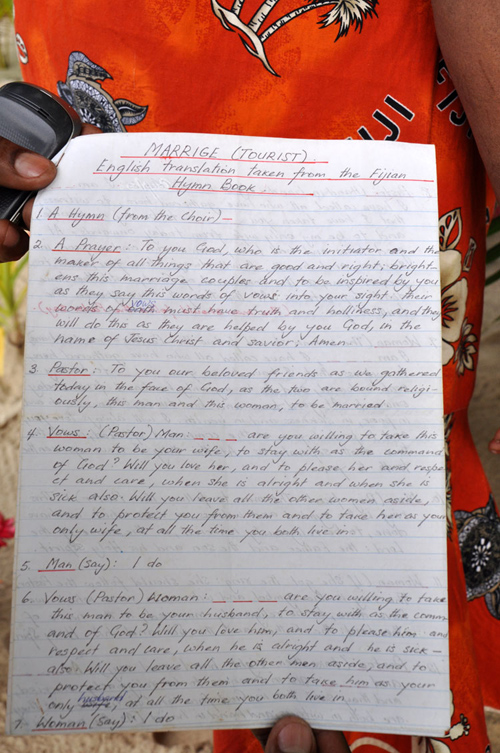 FIJI
MARRIGE (TOURIST)
English translation taken from the Fijian
Hymn Book
1. A Hymn (from the Choir)-
2. A Prayer: To you God, who is the initiator and the
maker of all things that are good and right; bright-
ens this marriage couples and to be inspired by you
as they say this words of vows into your sight. Their
words of vows must have truth and holliness, and they
will do this as they are helped by you God, in the
name of Jesus Christ and savior; Amen
3. Pastor: To you our beloved friends as we gathered
today in the face of God, as the two are bound religi-
ously, this man and this woman, to be married.
4. Vows: (Pastor) Man: _ _ _ are you willing to take this
woman to be your wife, to stay with as the command
of God? Will you love her, and to please her and respe
ct and care, when she is alright and when she is
sick also. Will you leave all the other women aside,
and to protect you from them and to take her as your
only wife, at all the time you both live in.
5. Man (say): I do
6. Vows (Pastor) Woman: _ _ _ are you willing to take
this man to be your husband, to stay with as the comm
and of God? Will you love him, and to please him and
respect and care, when he is alright and he is sick-
also. Will you leave all the other men aside, and to
protect you from them and to take him as your
only husband, at all the time you both live in.
7. Woman (say): I do